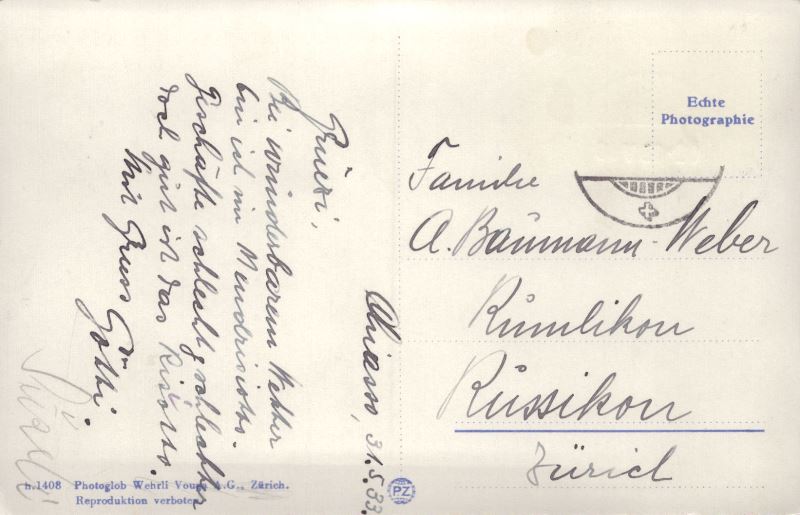 Chiasso, 31.5.33.
Grüezi,
Bei wunderbarem Wetter
bin ich im Mendrisiotto.
Geschäfte schlecht & schlechter
doch gut ist das Risotto.
Mit Gruss Em
Gotti.
Echte
Photographie
Familie
A. Baumann-Weber
Rumlikon
Russikon
Zürich
n.1408 Photoglob Wehrli Vouga A.G., Zürich.
Reproduktion verboten
PZ